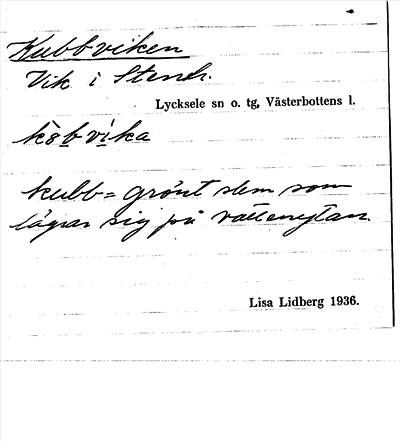 Kubbviken
Vik i Stentr.
Lycksele sn o. tg, Västerbottens l.
kubb = grönt slem som
lägrar sig på vattenytan.
Lisa Lidberg 1936.